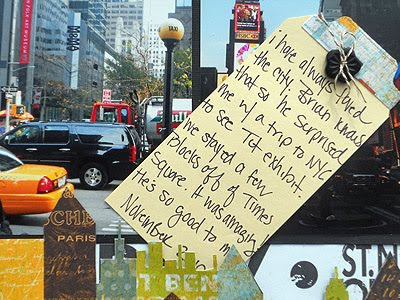 I have always loved
the city. Brian knows
that so he surprised
me w/ a trip to NYC
to see Tut exhibit.
We stayed a few
Blocks off of Times
Square. It was amazing!
He's so good to me
November
TAXI
FOLK ART MUSEUM
SCHE
PARIS
T BEN
ST.M